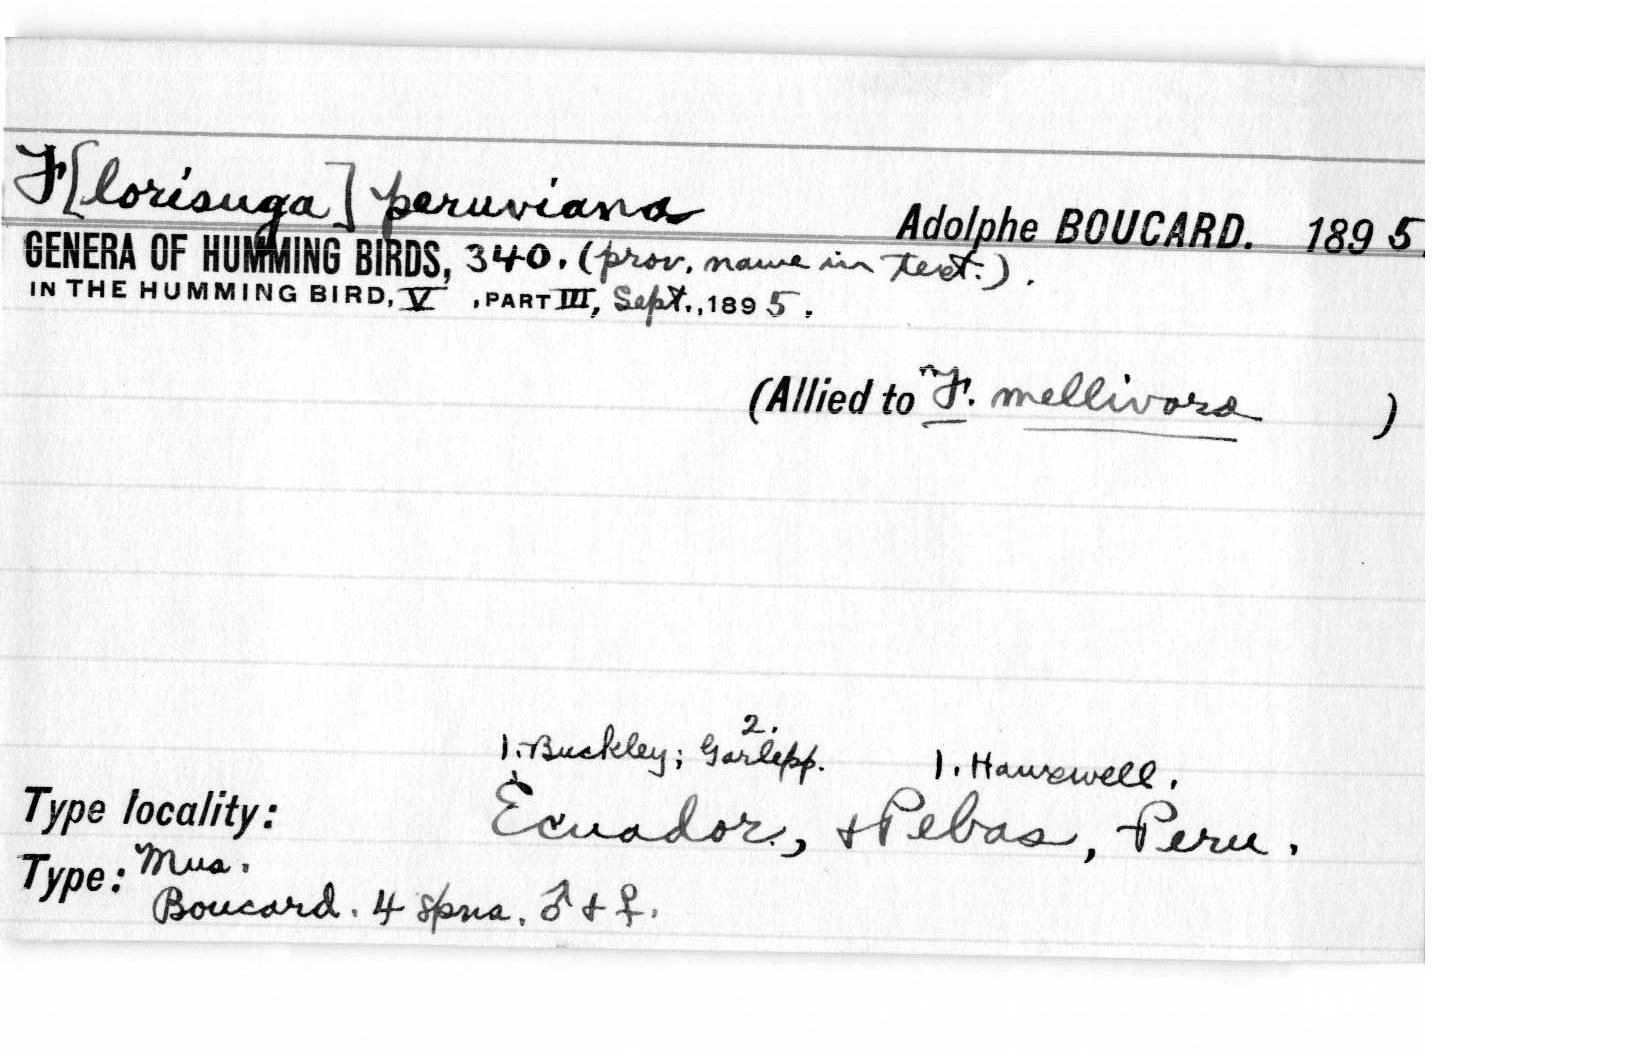 F[lorisuga] peruviana Adolphe BOUCARD. 1895.
GENERA OF HUMMING BIRDS, 340. (prov. name in text.).
IN THE HUMMING BIRD, V, PART III, Sept., 1895.
(Allied to "F. mellivora )
2.
1. Buckley; Garlepp. 1. Hauxwell.
Type locality: Ecuador, + Pebas, Peru.
Type: Mus.
Boucard. 4 spns. ♂ + ♀.